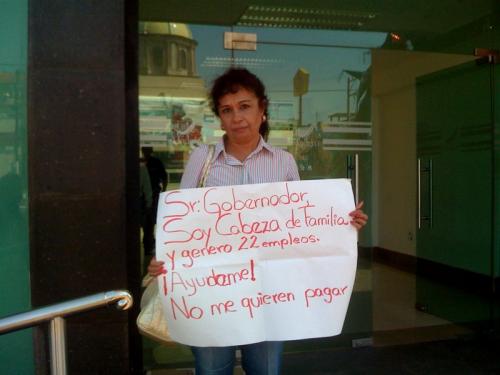 Sr. Gobernador,
Soy Cabeza de Familia
y genero 22 empleos.
¡Ayudame!
No me quieren pagar